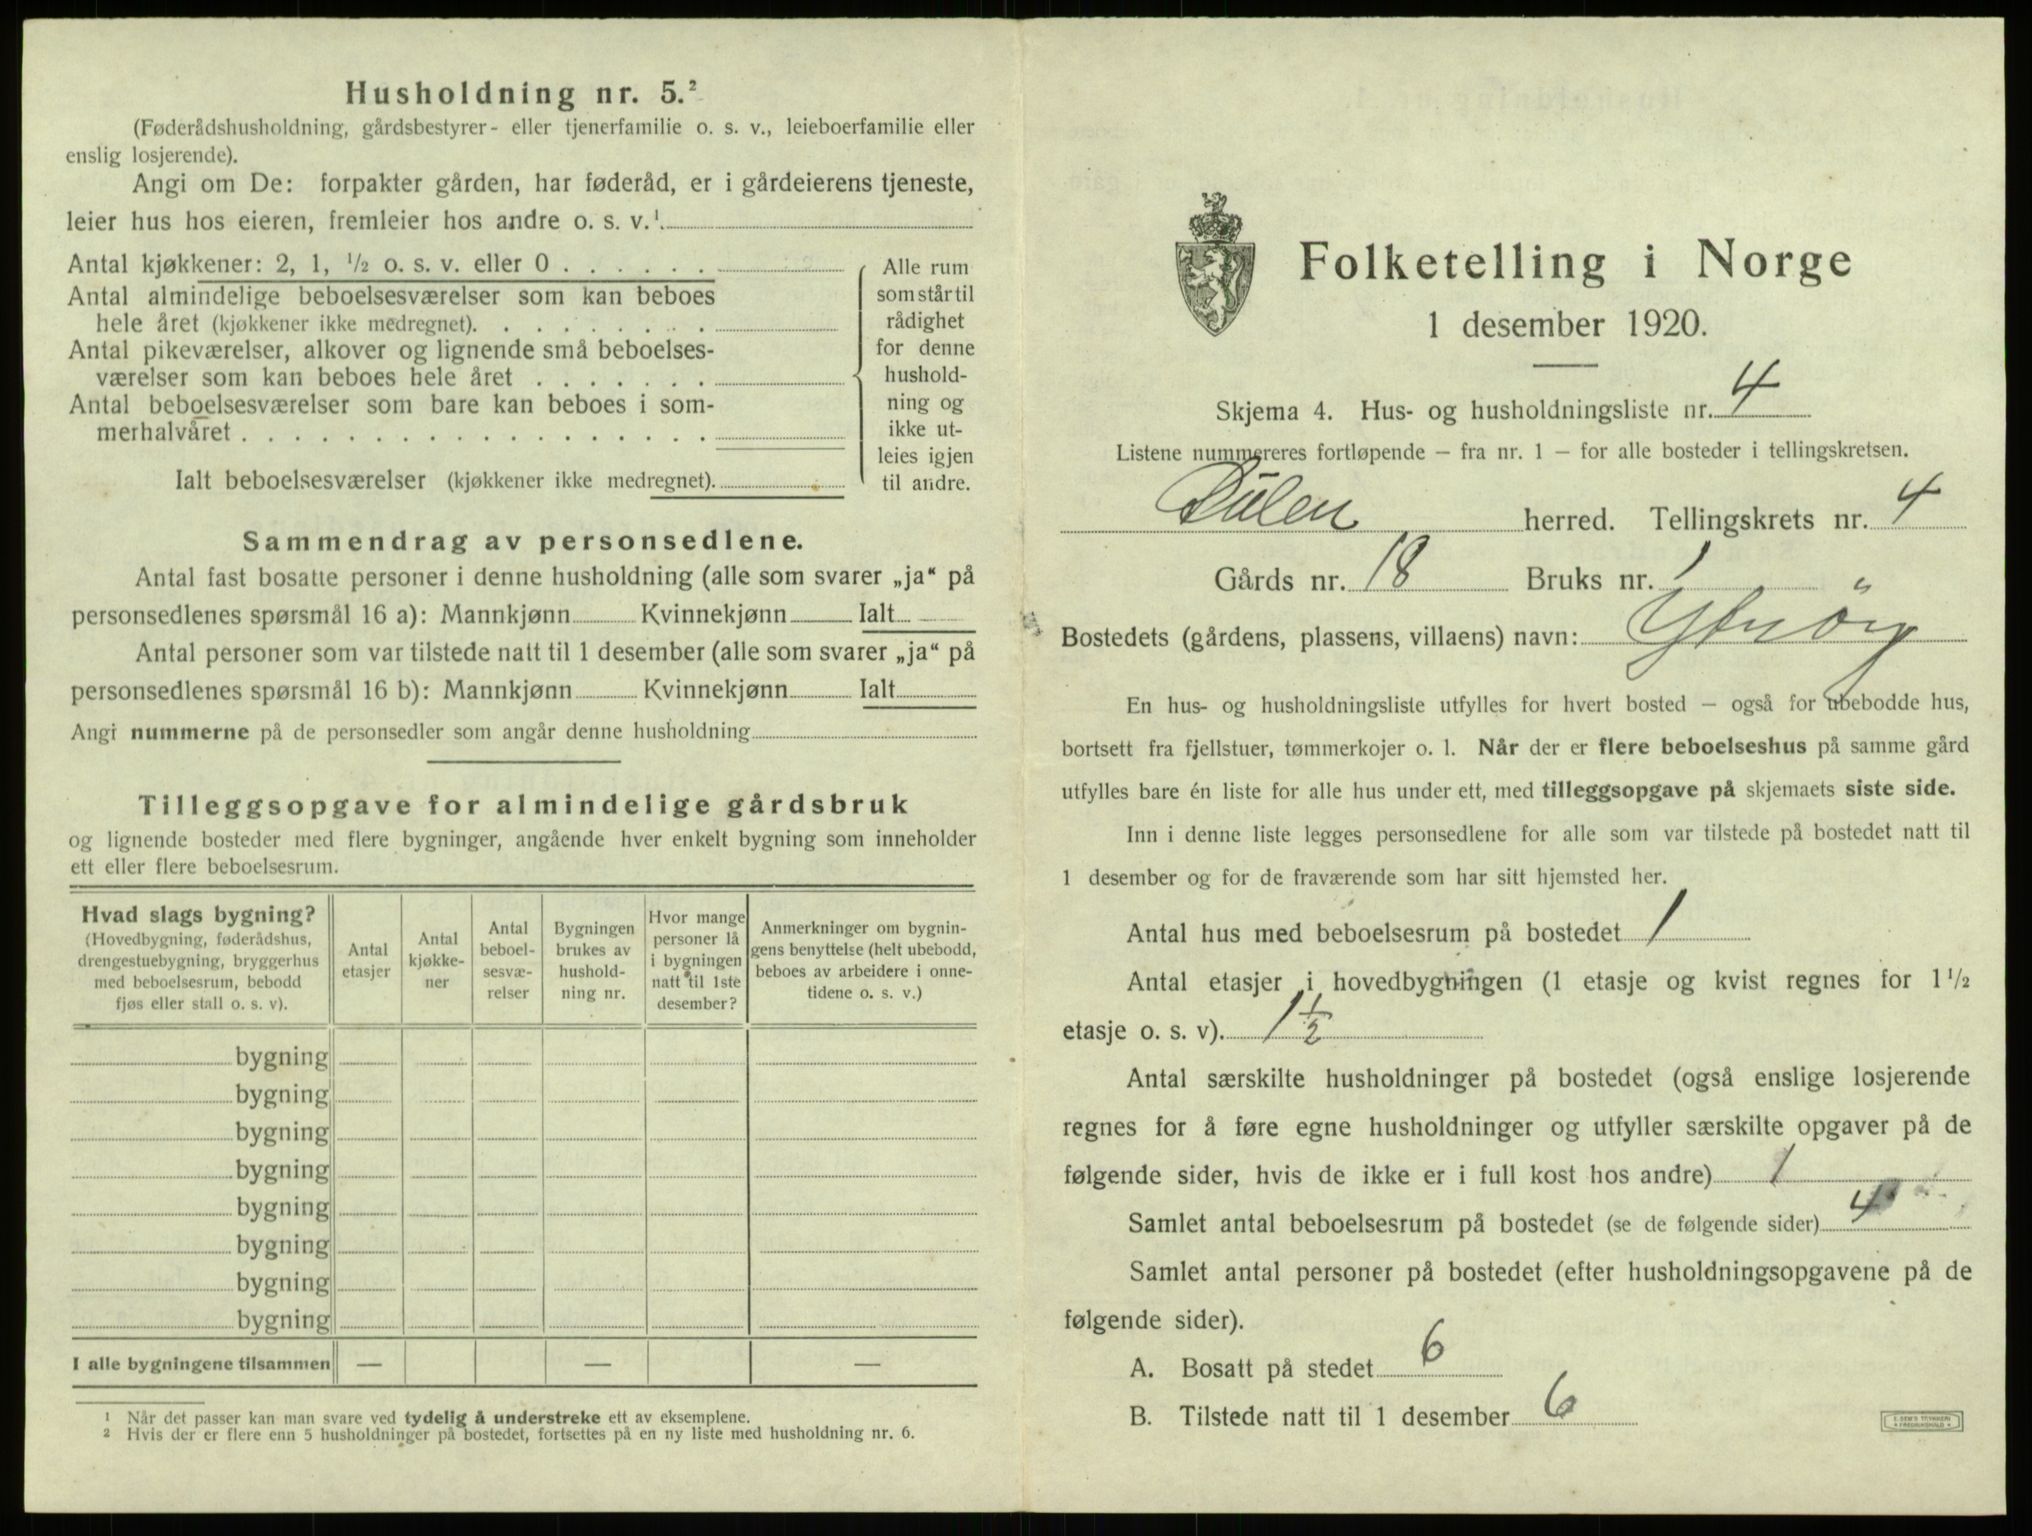 Husholdning nr. 5.²
(Føderådshusholdning, gårdsbestyrer- eller tjenerfamilie o. s. v., leieboerfamilie eller
enslig losjerende).
Angi om De: forpakter gården, har føderåd, er i gårdeierens tjeneste,
leier hus hos eieren, fremleier hos andre o. s. v.¹
Antal kjøkkener: 2, 1, ½ o. s. v. eller 0 . . . . . .
Antal almindelige beboelsesværelser som kan beboes
hele året (kjøkkener ikke medregnet). . . . . . . . .
Antal pikeværelser, alkover og lignende små beboelses-
værelser som kan beboes hele året . . . . . . .
Antal beboelsesværelser som bare kan beboes i som-
merhalvåret . . . . . . . . . . . . . . . . . .
Ialt beboelsesværelser (kjøkkener ikke medregnet).
Alle rum
som står til
rådighet
for denne
hushold-
ning og
ikke ut-
leies igjen
til andre.
Sammendrag av personsedlene.
Antal fast bosatte personer i denne husholdning (alle som svarer „ja“ på
personsedlenes spørsmål 16 a): Mannkjønn Kvinnekjønn Ialt
Antal personer som var tilstede natt til 1 desember (alle som svarer „ja“ på
personsedlenes spørsmål 16 b): Mannkjønn Kvinnekjønn Ialt
Angi nummerne på de personsedler som angår denne husholdning
Tilleggsopgave for almindelige gårdsbruk
og lignende bosteder med flere bygninger, angående hver enkelt bygning som inneholder
ett eller flere beboelsesrum.
Hvad slags bygning?
(Hovedbygning, føderådshus,
drengestuebygning, bryggerhus
med beboelsesrum, bebodd
fjøs eller stall o. s. v).
Antal
etasjer
Antal
kjøkke-
ner
Antal
beboel-
sesvæ-
relser
Bygningen
brukes av
hushold-
ning nr.
Hvor mange
personer lå
i bygningen
natt til 1ste
desember?
Anmerkninger om bygnin-
gens benyttelse (helt ubebodd,
beboes av arbeidere i onne-
tidene o. s. v.)
bygning
bygning
bygning
bygning
bygning
bygning
bygning
bygning
I alle bygningene tilsammen — — —
¹ Når det passer kan man svare ved tydelig å understreke ett av eksemplene.
² Hvis der er flere enn 5 husholdninger på bostedet, fortsettes på en ny liste med husholdning nr. 6.
Folketelling i Norge
1 desember 1920.
Skjema 4. Hus- og husholdningsliste nr. 4
Listene nummereres fortløpende – fra nr. 1 – for alle bosteder i tellingskretsen.
herred. Tellingskrets nr. 4
Gårds nr. 18 Bruks nr. 1
Bostedets (gårdens, plassens, villaens) navn:
En hus- og husholdningsliste utfylles for hvert bosted – også for ubebodde hus,
bortsett fra fjellstuer, tømmerkojer o. l. Når der er flere beboelseshus på samme gård
utfylles bare én liste for alle hus under ett, med tilleggsopgave på skjemaets siste side.
Inn i denne liste legges personsedlene for alle som var tilstede på bostedet natt til
1 desember og for de fraværende som har sitt hjemsted her.
Antal hus med beboelsesrum på bostedet 1
Antal etasjer i hovedbygningen (1 etasje og kvist regnes for 1 ½
etasje o. s. v). 1 ½
Antal særskilte husholdninger på bostedet (også enslige losjerende
regnes for å føre egne husholdninger og utfyller særskilte opgaver på de
følgende sider, hvis de ikke er i full kost hos andre) 1
Samlet antal beboelsesrum på bostedet (se de følgende sider) 4
Samlet antal personer på bostedet (efter husholdningsopgavene på de
følgende sider).
A. Bosatt på stedet 6
B. Tilstede natt til 1 desember 6